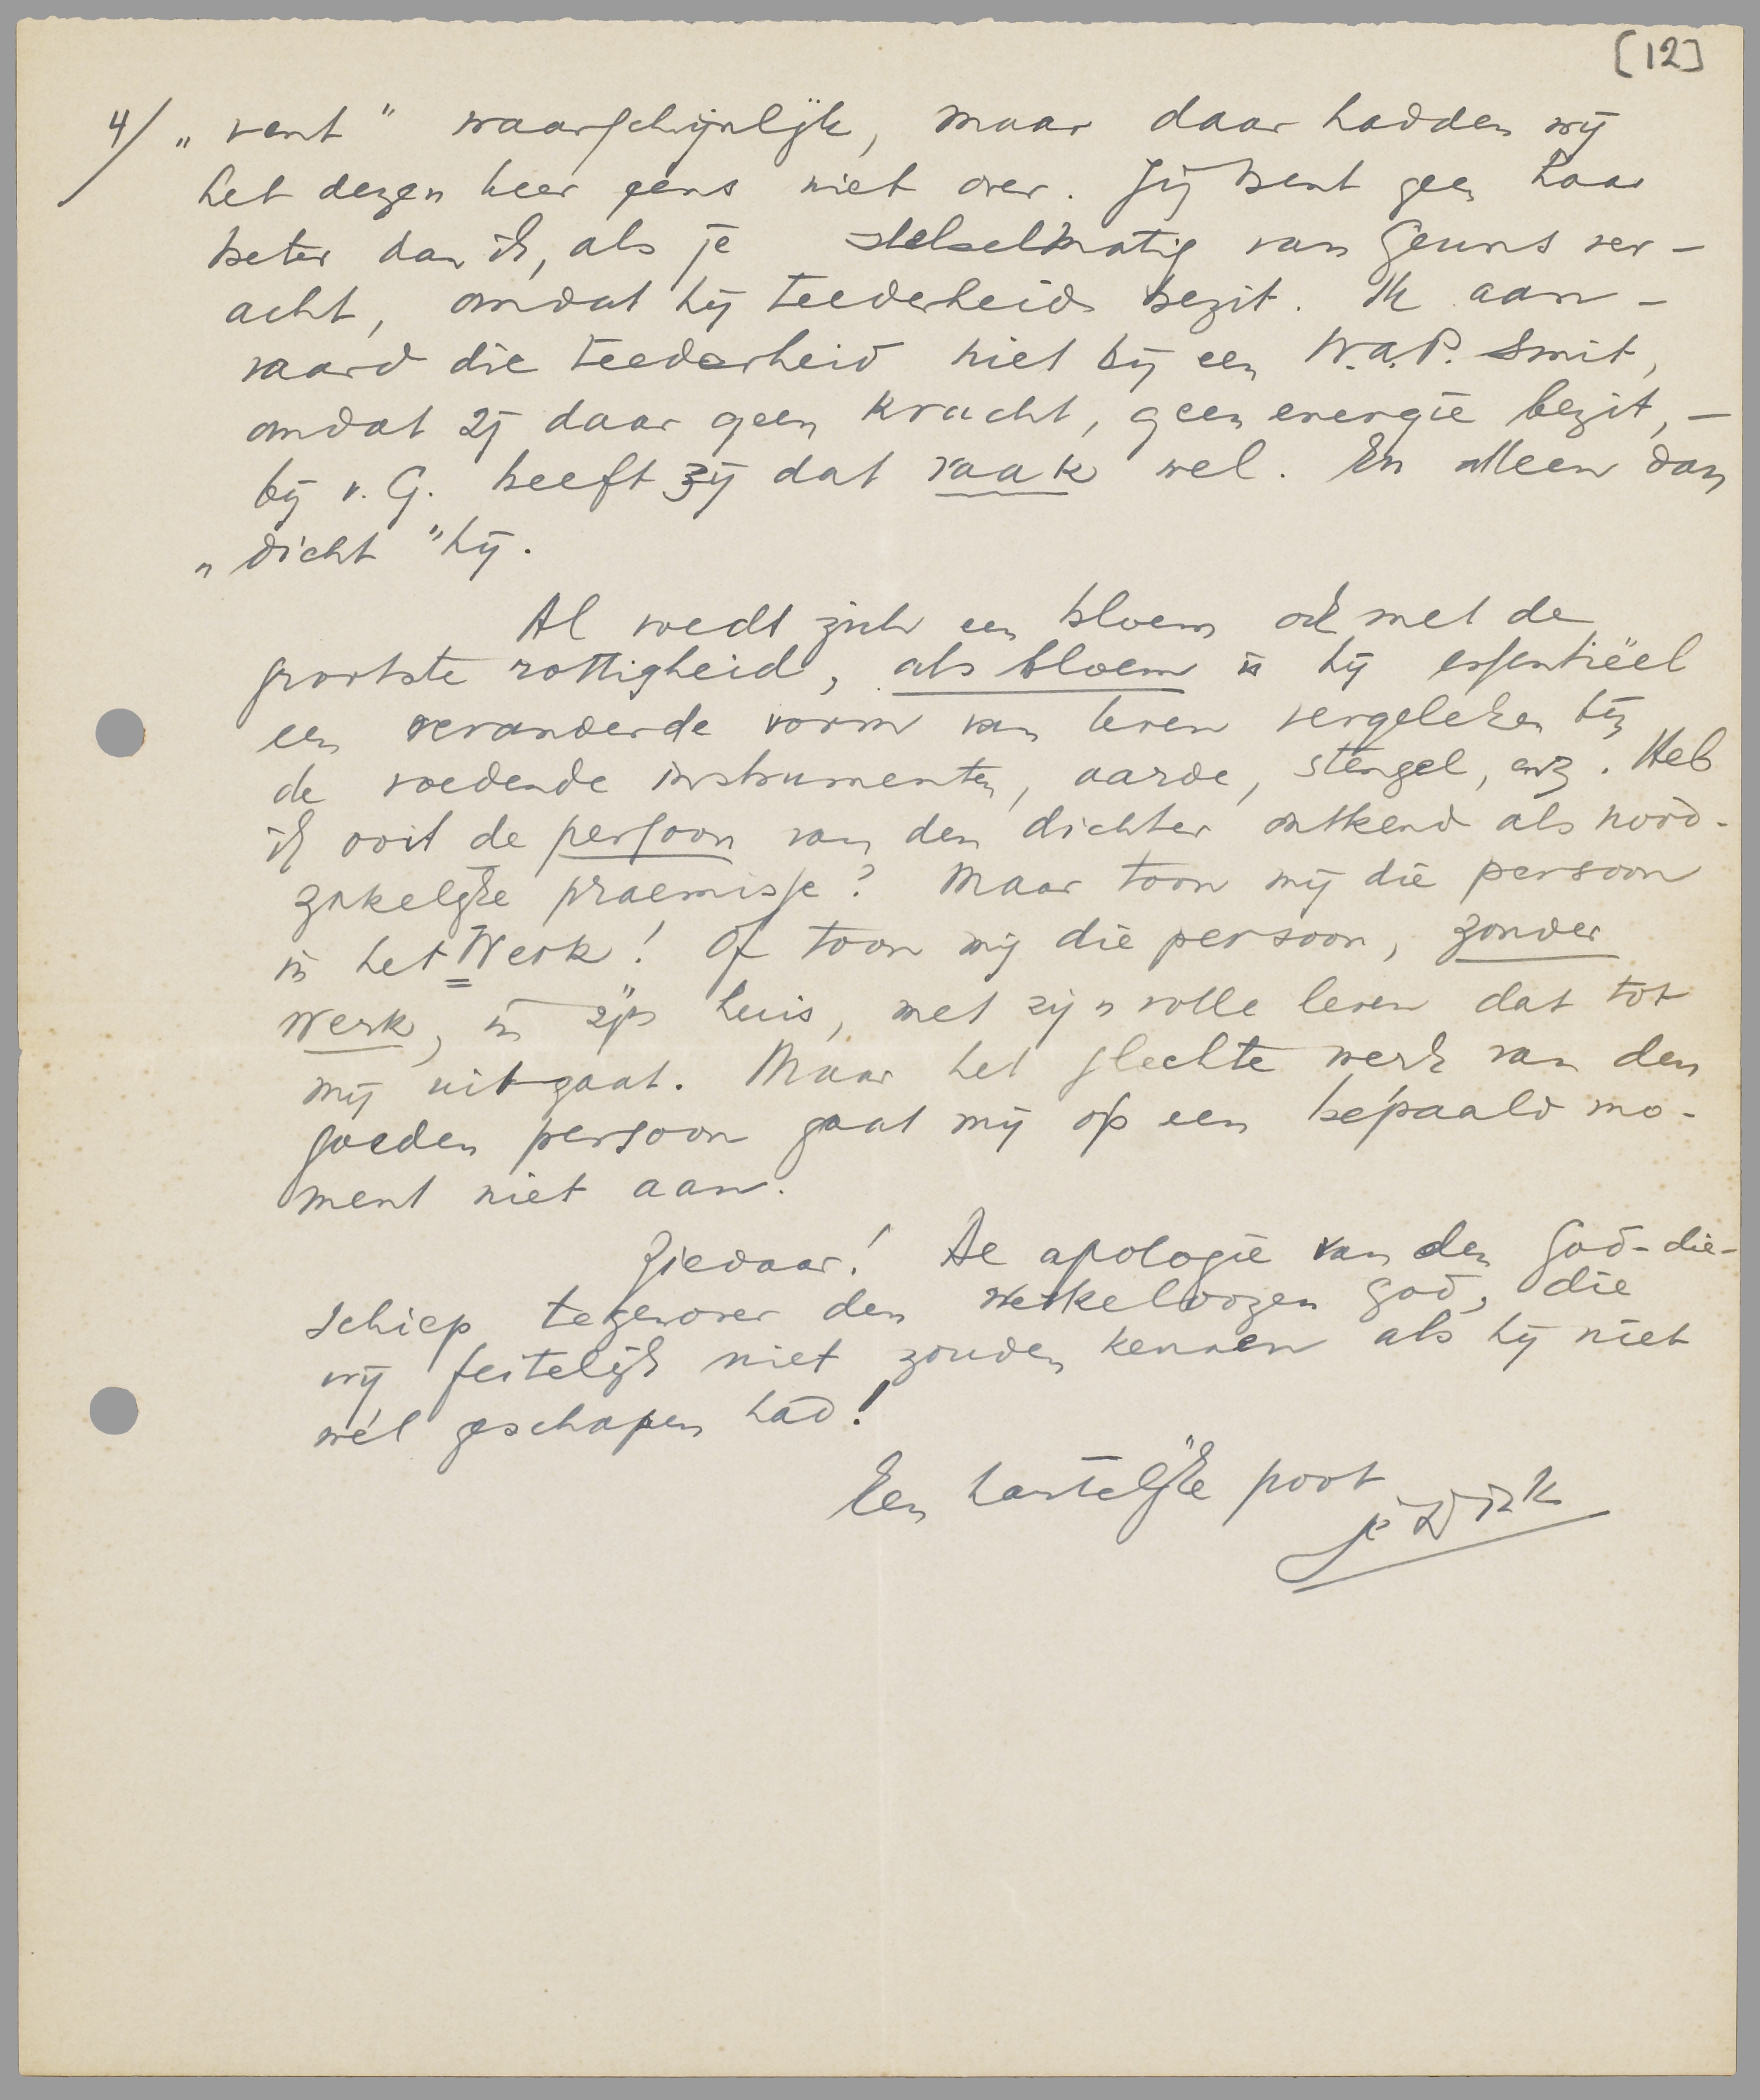 [12]
4/ „vent" waarschijnlijk, maar daar hadden wij
het dezen keer eens niet over. Jij bent geen haar
beter dan ik, als je stelselmatig van Geuns ver-
acht, omdat hij teederheid bezit. Ik aan-
vaard die teederheid niet bij een W.A.P. Smit,
omdat zij daar geen kracht, geen energie bezit, —
bij v. G. heeft zij dat vaak wel. En alleen dan
„dicht" hij.
Al voedt zich een bloem ook met de
grootste rottigheid, als bloem is hij essentiëel
een veranderde vorm van leven vergeleken bij
de voedende instrumenten, aarde, stengel, enz. Heb
ik ooit de persoon van den dichter ontkend als nood-
zakelijke praemisse? Maar toon mij die persoon
in het Werk! Of toon mij die persoon, zonder
Werk, in zijn huis, met zijn volle leven dat tot
mij uitgaat. Maar het slechte werk van den
goeden persoon gaat mij op een bepaald mo-
ment niet aan.
Ziedaar! De apologie van den God-die-
schiep tegenover den werkeloozen god, die
wij feitelijk niet zouden kennen als hij niet
wél geschapen had!
Een hartelijke poot